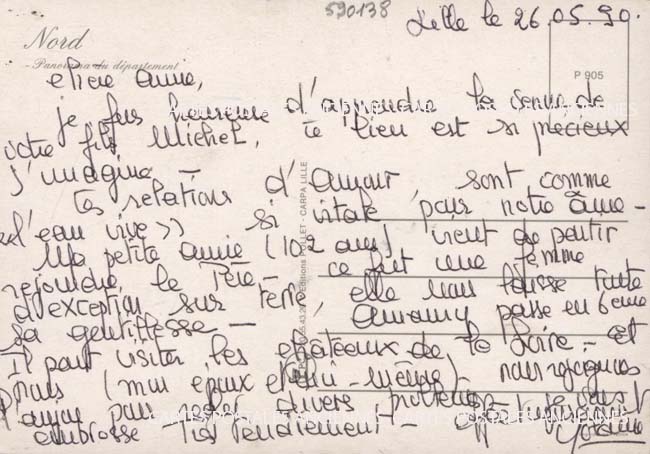 590138
Lille le 26.05.90.
Nord
- Panorama du département
P 905
Chère Amie,
je fus heureuse d'apprendre la venue de
votre fils Michel, ce lien est si précieux
j'imagine -
Ces relations d'Amour, sont comme
"l'eau vive" si vitale pour notre âme -
Ma petite amie (102 ans) vient de partir
rejoindre le Père - ce fut une femme
d'exception sur terre, elle nous laisse toute
sa gentillesse - Amamy passe en 6ème
Il part visiter les châteaux de la Loire - et
nous (mon époux et moi-même) nous rejoignons
pour divers
embrasse très tendrement -
Editions POLLET - CARPA LILLE